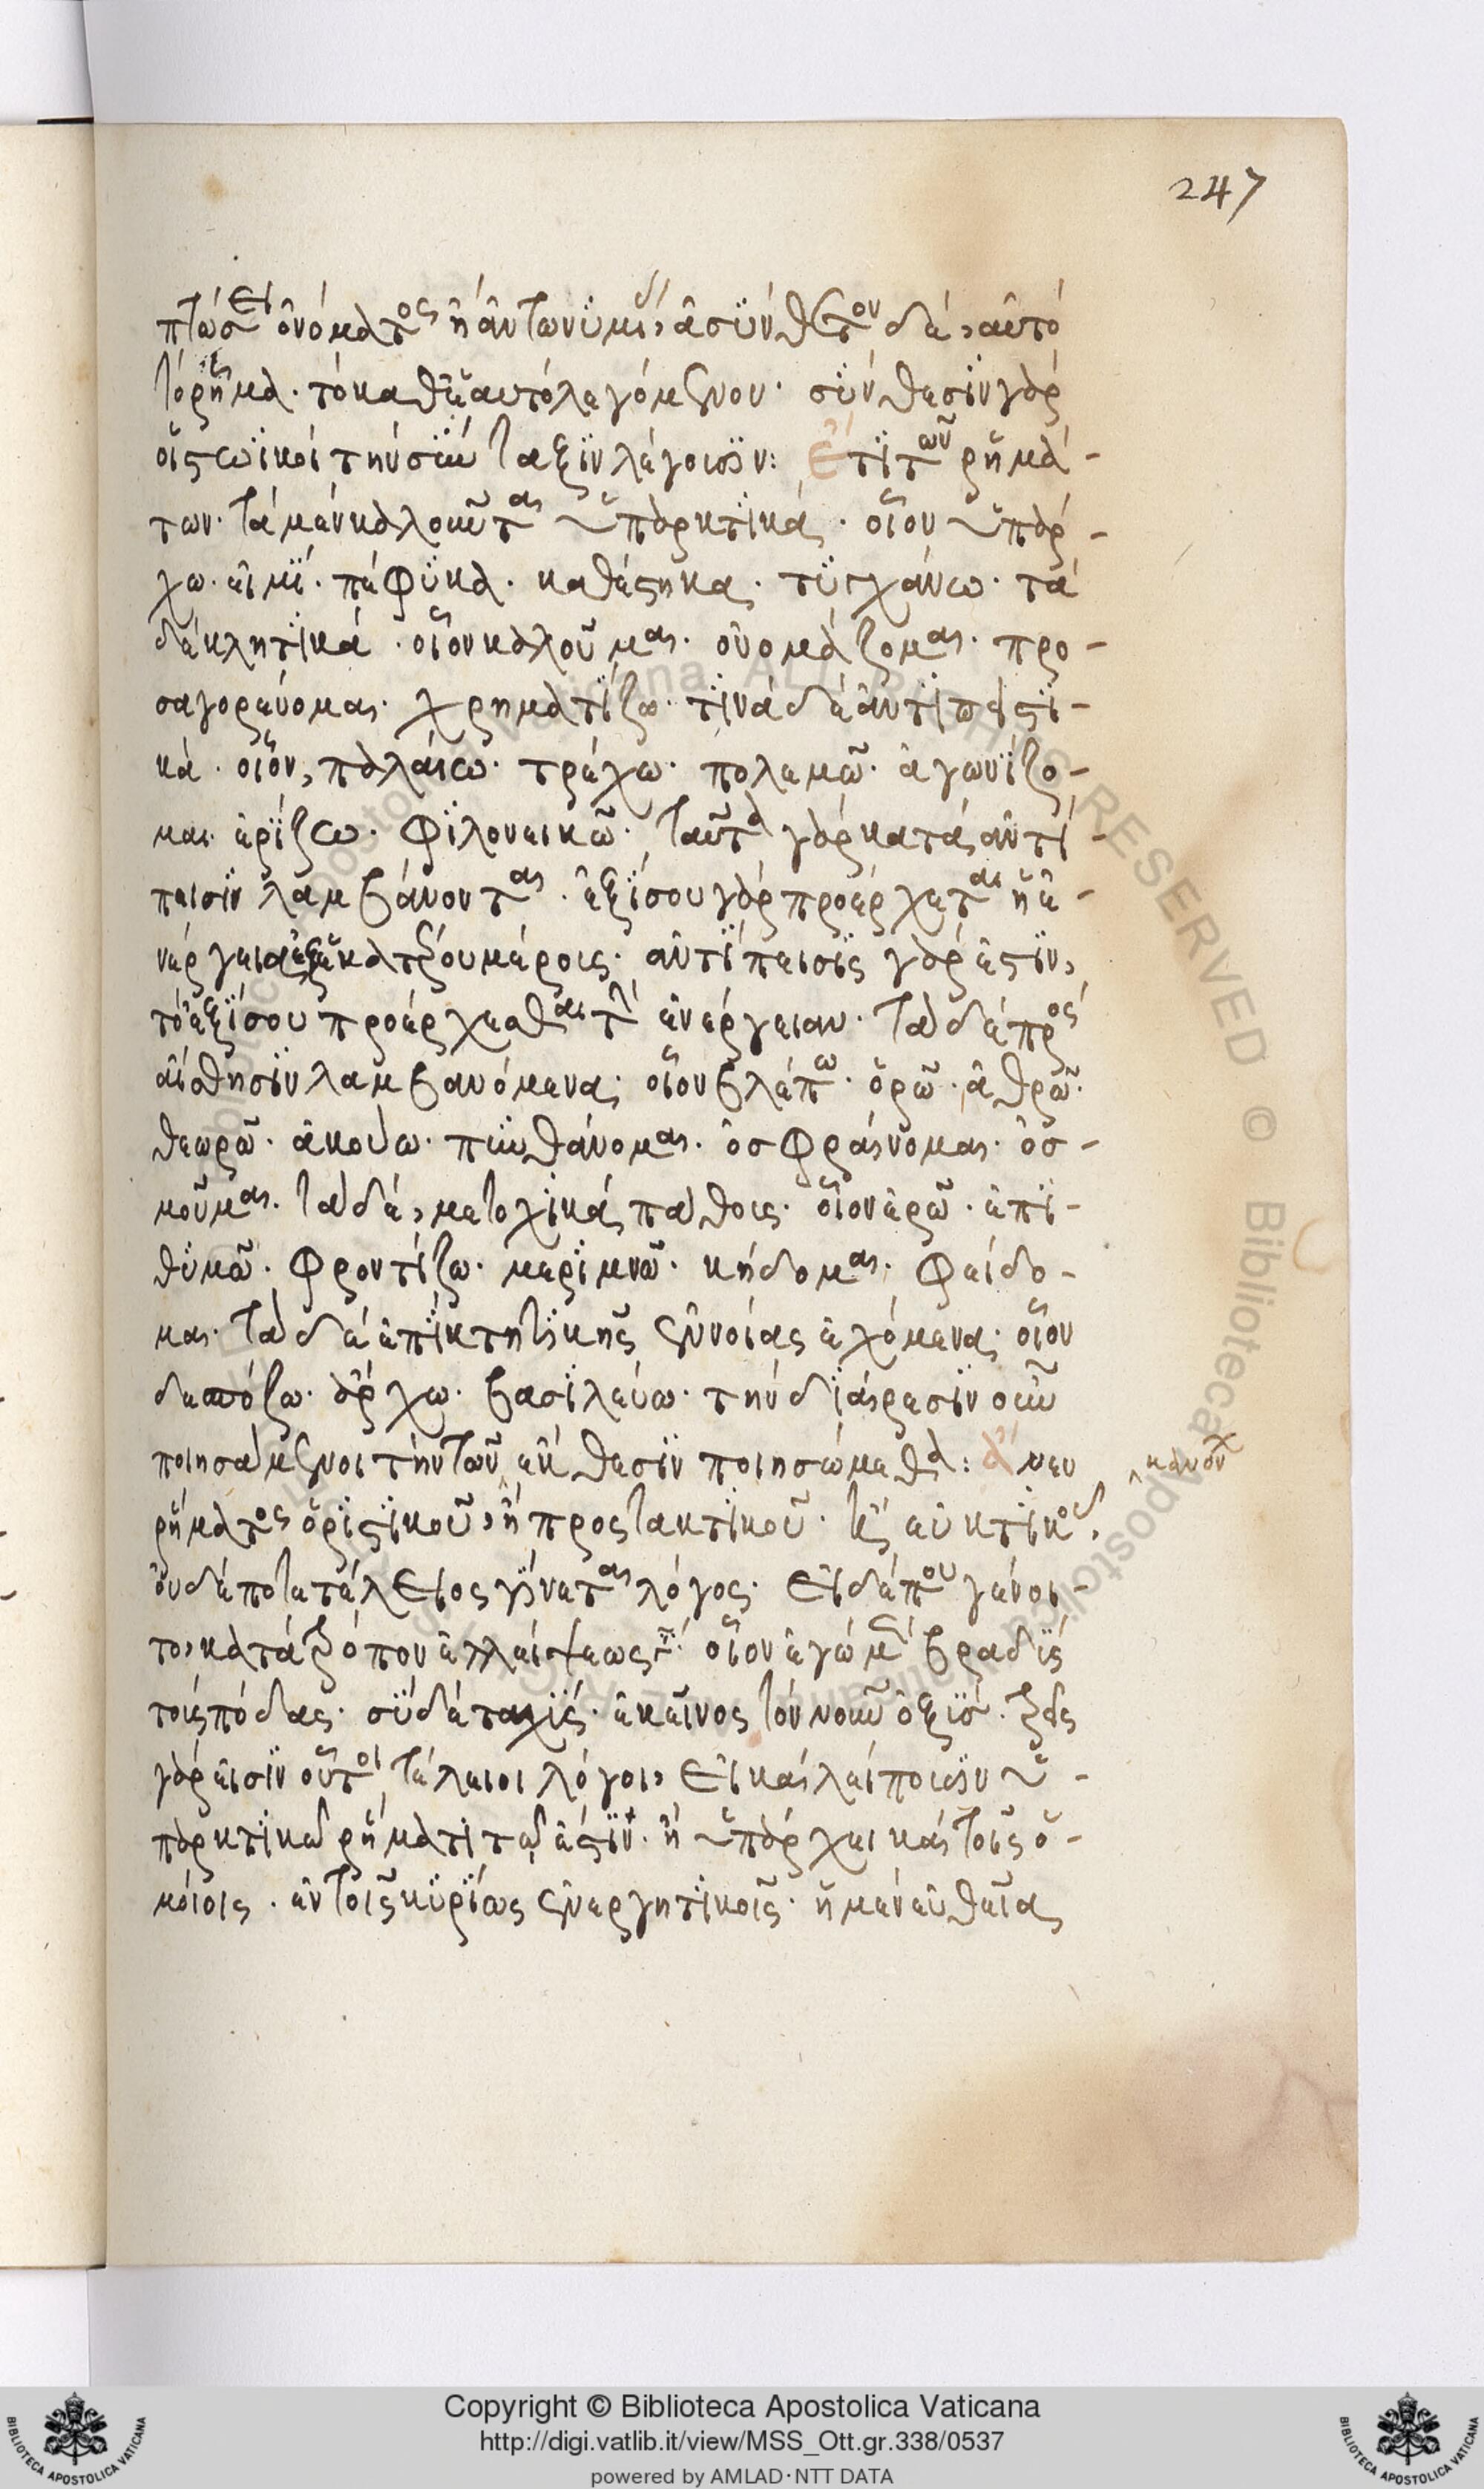 247
πτώσει ὀνόματος ἢ ἀντωνυμίας, ἀσύνθετον δέ, αὐτὸ
τὸ ῥῆμα. τὸ καθ' ἑαυτὸ λεγόμενον. σύνθεσιν γὰρ
οἱ στωϊκοὶ τὴν σύνταξιν λέγουσιν: Ἔτι τῶν ῥημά-
των. τὰ μὲν καλοῦνται ὑπαρκτικά. οἷον ὑπάρ-
χω. εἰμί. πέφυκα. καθέστηκα. τυγχάνω. τὰ
δὲ κλητικά. οἷον καλοῦμαι. ὀνομάζομαι. προ-
σαγορεύομαι. χρηματίζω. τινὰ δὲ ἀντιπειστι-
κά. οἷον, παλαίω. τρέχω. πολεμῶ. ἀγωνίζο-
μαι. ἐρίζω. φιλονεικῶ. ταῦτα γὰρ κατὰ ἀντί-
πεισιν λαμβάνονται. ἐξίσου γὰρ προέρχεται ἡ ἐ-
νέργεια ἐξ ἑκατέρου μέρους. ἀντίπεισις γάρ ἐστιν,
τὸ ἐξίσου προέρχεσθαι τὴν ἐνέργειαν. τὰ δὲ πρὸς
αἴσθησιν λαμβανόμενα. οἷον βλέπω. ὁρῶ. ἀθρῶ.
θεωρῶ. ἀκούω. πυνθάνομαι. ὀσφραίνομαι. ὀσ-
μοῦμαι. τὰ δέ, μετοχικὰ πάθους. οἷον ἐρῶ. ἐπι-
θυμῶ. φροντίζω. μεριμνῶ. κήδομαι. φείδο-
μαι. τὰ δὲ ἐπικτητικῆς ἐννοίας ἐχόμενα. οἷον
δεσπόζω. ἄρχω. βασιλεύω. τὴν διαίρεσιν οὖν
ποιησάμενοι τὴν τῶν ἔκθεσιν ποιησώμεθα: Ἄνευ
κανόν
ῥήματος ὁριστικοῦ, ἢ προστακτικοῦ. καὶ εὐκτικοῦ,
οὐδέποτε τέλειος γίνεται λόγος. Εἰ δέ που γένοι-
το, κατὰ τρόπον ἐλλείψεως. οἷον ἐγὼ μὲν βραδὺς
τοὺς πόδας. σὺ δὲ ταχύς. ἐκεῖνος τὸν νοῦν ὀξύς. τρεῖς
γάρ εἰσιν οὗτοι τέλειοι λόγοι, Εἰ καὶ λείπουσιν ὑ-
παρκτικῷ ῥήματι τῷ ἐστίν. ἢ ὑπάρχει καὶ τοῖς ὁ-
μοίοις. ἐν τοῖς κυρίως ἐνεργητικοῖς. ἡ μὲν εὐθεῖα
Copyright © Biblioteca Apostolica Vaticana
http://digi.vatlib.it/view/MSS_Ott.gr.338/0537
powered by AMLAD·NTT DATA